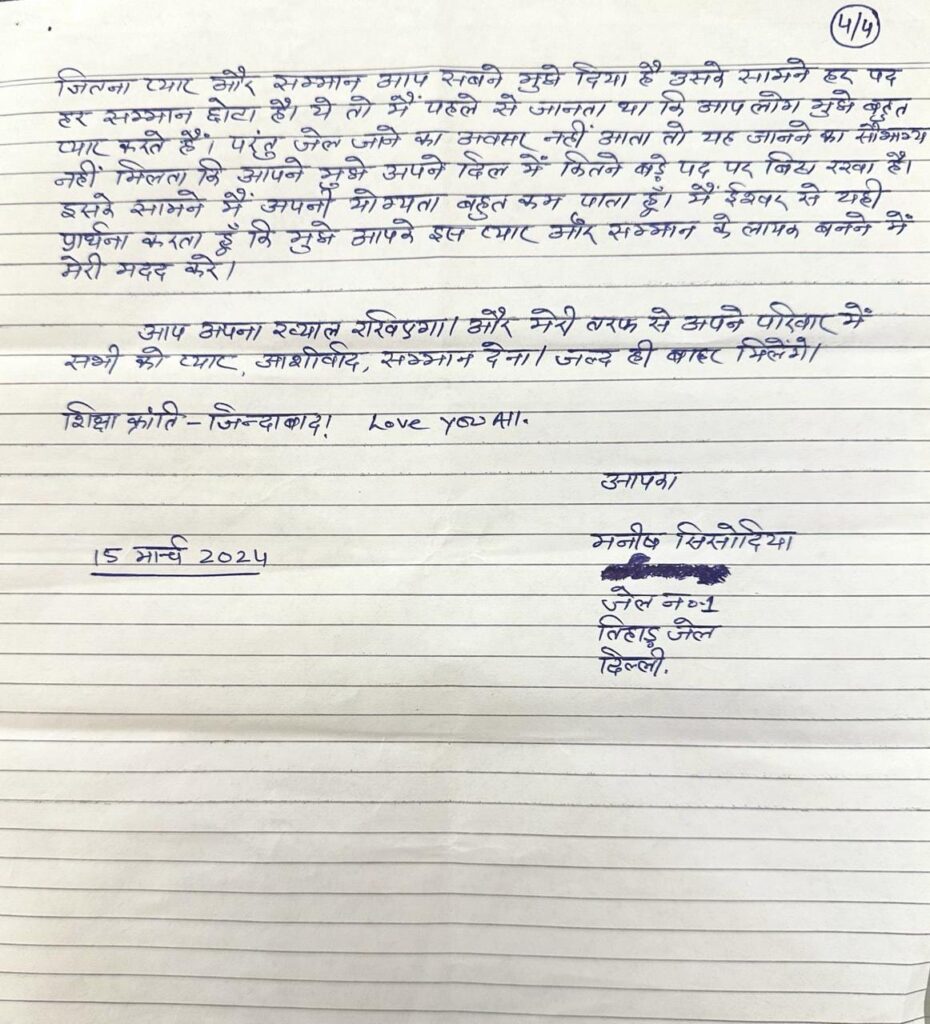 4/4
जितना प्यार और सम्मान आप सबने मुझे दिया है उसके सामने हर पद
हर सम्मान छोटा है। ये तो मैं पहले से जानता था कि आप लोग मुझे बहुत
प्यार करते हैं। परंतु जेल जाने का अवसर नहीं आता तो यह जानने का सौभाग्य
नहीं मिलता कि आपने मुझे अपने दिल में कितने बड़े पद पर बिठा रखा है।
इसके सामने मैं अपनी योग्यता बहुत कम पाता हूँ। मैं ईश्वर से यही
प्रार्थना करता हूँ कि मुझे आपके इस प्यार और सम्मान के लायक बनने में
मेरी मदद करे।
आप अपना ख्याल रखिएगा। और मेरी तरफ से अपने परिवार में
सभी को प्यार, आशीर्वाद, सम्मान देना। जल्द ही बाहर मिलेंगे।
शिक्षा क्रांति - जिन्दाबाद! Love You All.
आपका
मनीष सिसोदिया
15 मार्च 2024
जेल न०-1
तिहाड़ जेल
दिल्ली.